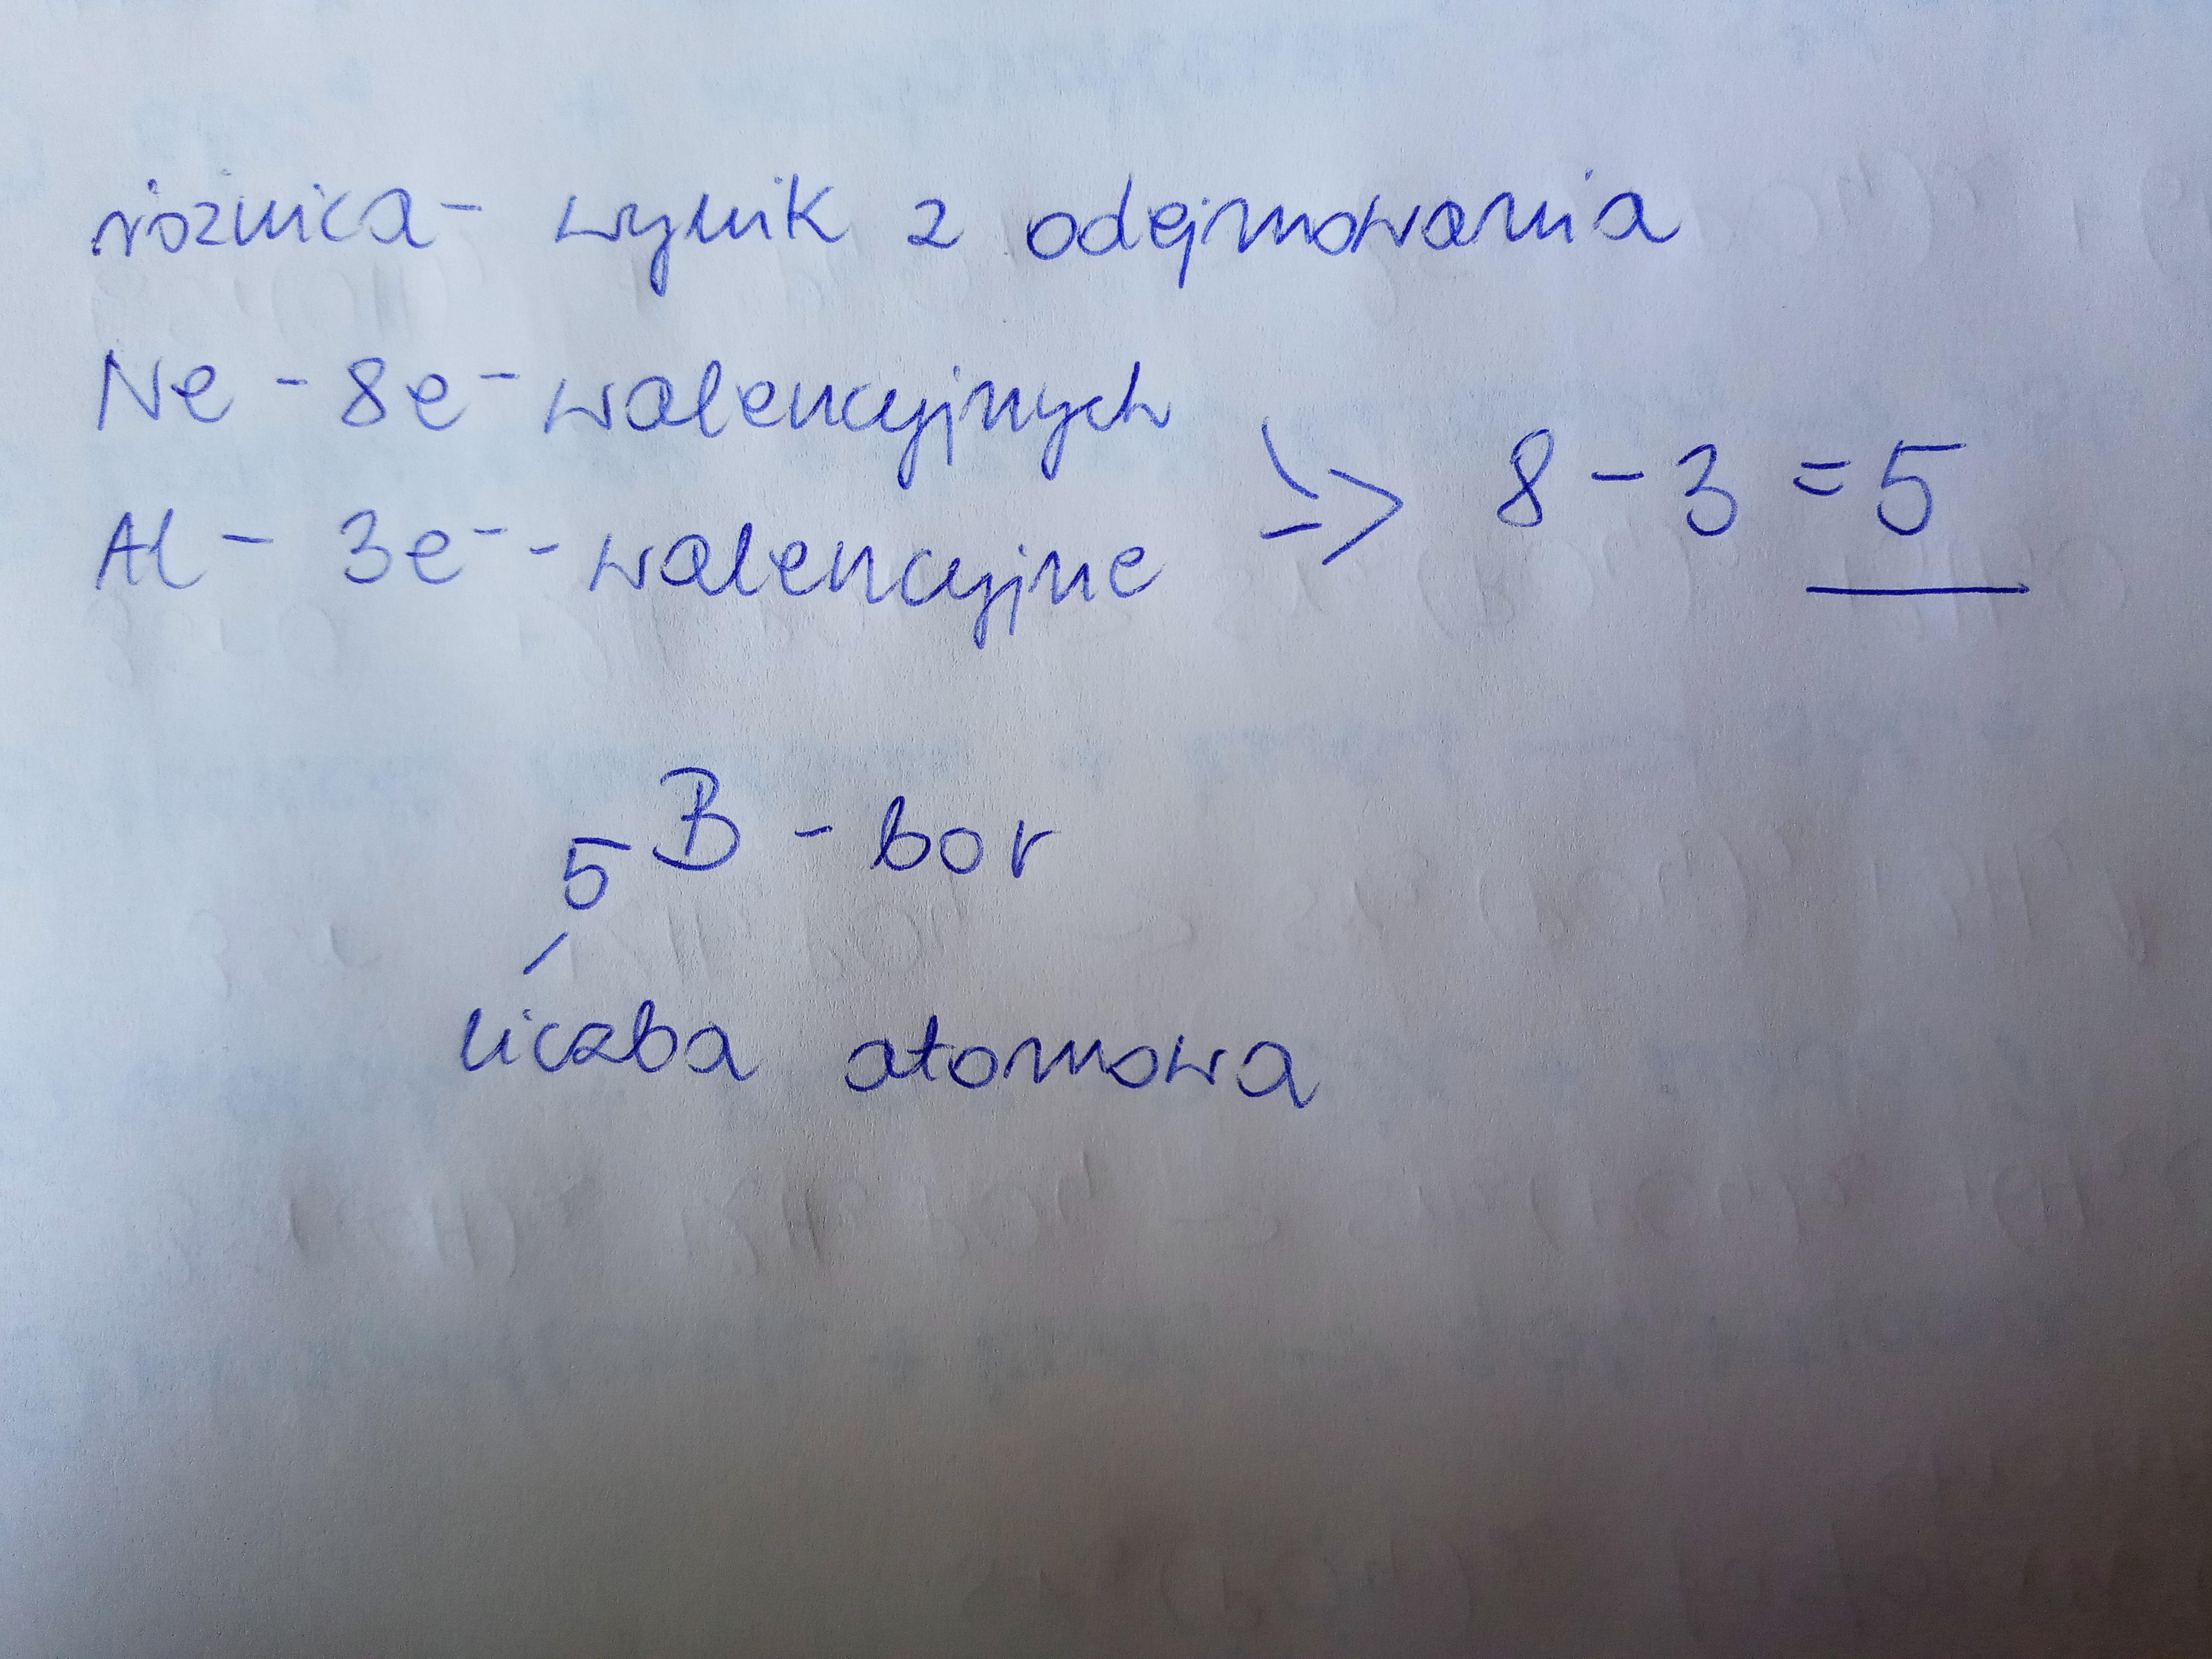 różnica - wynik z odejmowania
Ne - 8e⁻ walencyjnych
Al - 3e⁻ - walencyjne
=> 8 - 3 = 5
₅B - bor
liczba atomowa